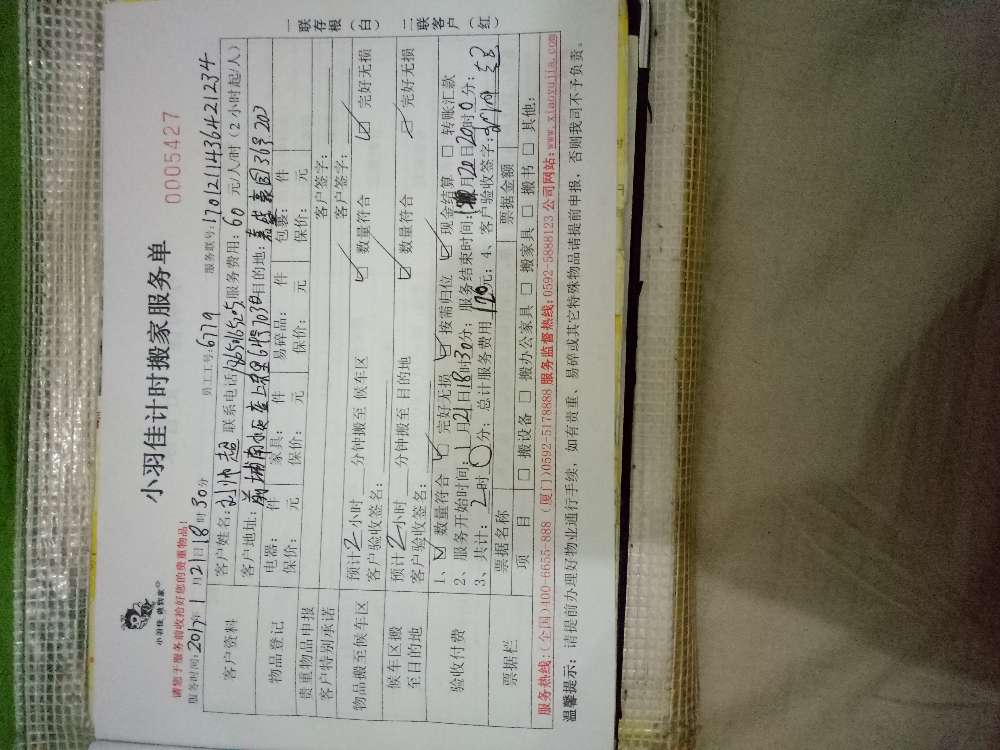 小羽佳计时搬家服务单
0005427
小羽佳 做到家
请您于服务前收拾好您的贵重物品！
服务时间: 2017年 1月21日18时30分 员工工号: 6779 服务联号: 1701211436421234
客户资料
客户姓名: 刘帅超 联系电话 服务费用: 60 元/人/时（2小时起/人）
客户地址: 目的地:
物品登记
电器: 件 家具: 件 易碎品: 件 包裹: 件
保价: 元 保价: 元 保价: 元 保价: 元
贵重物品申报 客户签字:
客户特别承诺 客户签字:
物品搬至候车区
预计2小时 分钟搬至 候车区 ☑ 数量符合 ☑ 完好无损
客户验收签名:
候车区搬至目的地
预计2小时 分钟搬至 目的地 ☑ 数量符合 ☑ 完好无损
客户验收签名:
验收付费
1、☑ 数量符合 ☑ 完好无损 ☑ 按需归位 ☑ 现金结算 □ 转账汇款
2、服务开始时间: 1月21日18时30分; 服务结束时间: 月20日20时0分;
3、共计: 2时0分; 总计服务费用 元; 4、客户验收签字:
票据栏
票据名称 票据金额
项目 □ 搬设备 □ 搬办公家具 □ 搬家具 □ 搬书 □ 其他:
服务热线: (全国)400-6655-888 (厦门)0592-5178888 服务监督热线: 0592-5888123 公司网站: www.xiaoyujia.com
温馨提示: 请提前办理好物业通行手续, 如有贵重、易碎或其它特殊物品请提前申报, 否则我司不予负责。
一联存根（白）
二联客户（红）